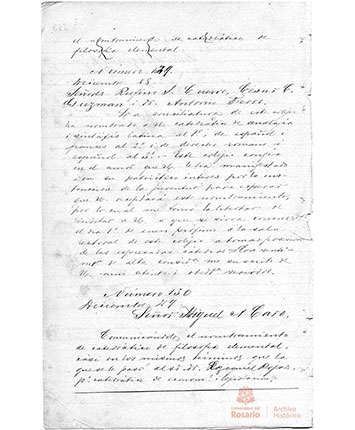 el nombramiento de catedrático de
filosofía elemental.
Número 129.
Diciembre 28.
Señores Rufino J. Cuervo, Cesar C.
Guzman i dr. Antonio Ferro.
La conciliatura de este colejio
ha nombrado a U. catedrático de analojía
i sintáxis latina al 1º, de español i
frances al 2º i de derecho romano i
español al 3º. Este colejio confía
en el amor que U. ha manifestado
i en su patriótico interes por la ins-
truccion de la juventud para esperar
que U. aceptará este nombramiento,
por lo cual me tomo la libertad de
invitar a U. a que se sirva concurrir
el dia 1º de enero próximo a la sala
rectoral de este colejio a tomar posesion
de las espresadas cátedras. Con senti-
mtº de alta consid.n me suscribo de
U. mui atento i obedte servidor.
Número 130
Diciembre 29.
Señor Miguel A Caro.
Comunicándole el nombramiento
de catedrático de filosofía elemental,
casi en los mismos términos que la
que se pasó al Sr. Dr. Ezequiel Rojas
pª catedrático de
Universidad del
Rosario
Archivo
Histórico